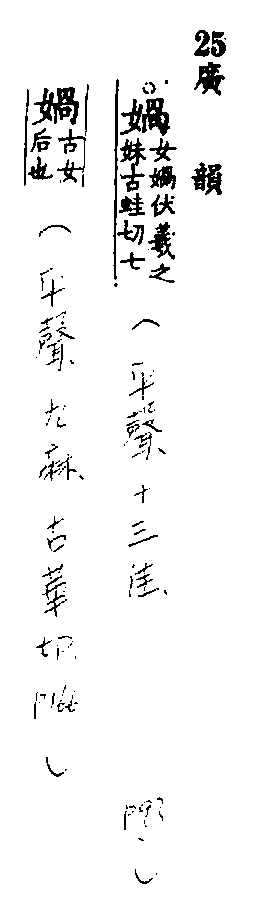 25廣韻
○媧女媧伏羲之妹古蛙切七(平聲、十三佳、P93。)
媧古女后也(平聲、九麻、古華切、P166)